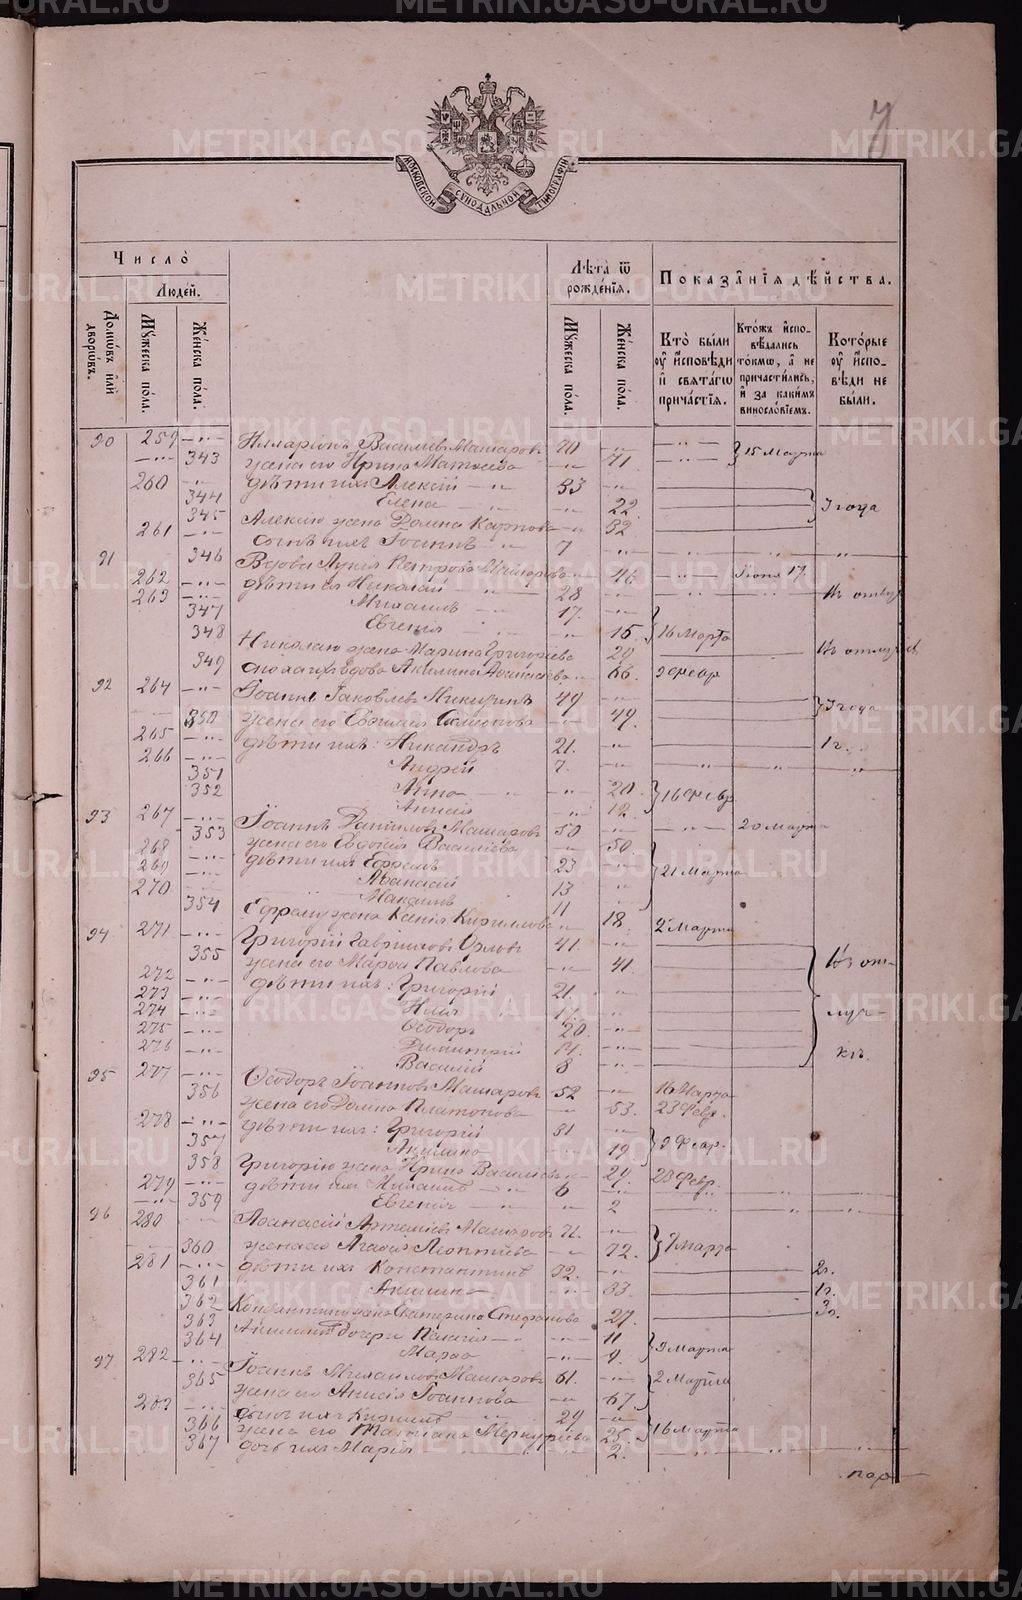 7
МОСКОВСКОЙ СѴНОДАЛЬНОЙ ТИПОГРАФІИ
Число̀
Людей.
Домѡвъ или дворѡвъ.
Мꙋжеска пола.
Женска пола.
Лѣта ѿ рожденїѧ.
Мꙋжеска пола.
Женска пола.
Показанїѧ дѣйства.
Кто были ᲂу исповѣди и свѧтагѡ причастїѧ.
Ктожъ исповѣдались токмѡ, а не причастились, и за какимъ винословїемъ.
Которые ᲂу исповѣди не были.
90 259 Илларіонъ Васильевъ Машаровъ 70 15 Марта
343 жена его Ирина Матѳеева 71
260 дѣти ихъ Алексій 33
344 Елена 22 3 года
345 Алексію жена Домна Карпова 32
261 сынъ ихъ Іоаннъ 7
91 346 Вдова Лукія Петрова Машарова 46 Іюня 17
262 дѣти ея Николай 28
263 Михаилъ 17
347 Евгенія 15 16 Марта
348 Николаю жена Марина Григорьева 29 Въ отлучкѣ
349 вдова Акилина 66 9 Февр
92 264 Іоаннъ Іаковлевъ Никитинъ 49 3 года
350 жена его Евѳимія Симеонова 49
265 дѣти ихъ: Никандръ 21 1 г.
266 Андрей 7
351 Анна 20 16 Февр
352 Анисія 12
93 267 Іоаннъ Даниловъ Машаровъ 50 20 Марта
353 жена его Евдокія Василіева 50
268 дѣти ихъ Ефремъ 23 21 Марта
269 Аѳанасій 13
270 Максимъ 11
354 Ефрему жена Ксенія Кириллова 18 2 Марта
94 271 Григорій Гавриловъ Орловъ 41 Въ от-
355 жена его Марѳа Павлова 41
272 дѣти ихъ: Григорій 21
273 Илія 17 луч-
274 Ѳеодоръ 20
275 Димитрій 14 кѣ.
276 Василій 8
95 277 Ѳеодоръ Іоанновъ Машаровъ 52 16 Марта
356 жена его Домна Платонова 53 23 Февр.
278 дѣти ихъ: Григорій 31 9 Февр.
357 Акилина 19
358 Григорію жена Ирина Василіева 29 28 Февр.
279 дѣти ихъ Михаилъ 6
359 Евгенія 2
96 280 Аѳанасій Артеміевъ Машаровъ 71 7 Марта
360 жена его Агаѳія Леонтіева 72
281 дѣти ихъ Константинъ 32 2 г.
361 Акилина 33 1 г.
362 Константину жена Екатерина Стефанова 27 3 г.
363 Акилины дочери Пелагія 11 9 Марта
364 Марѳа 9
97 282 Іоаннъ Михаиловъ Машаровъ 61 2 Марта
365 жена его Анисія Іоаннова 67
283 сынъ ихъ Кириллъ 29 16 Марта
366 жена его Татіана Меркуріева 25
367 дочь ихъ Марія 2